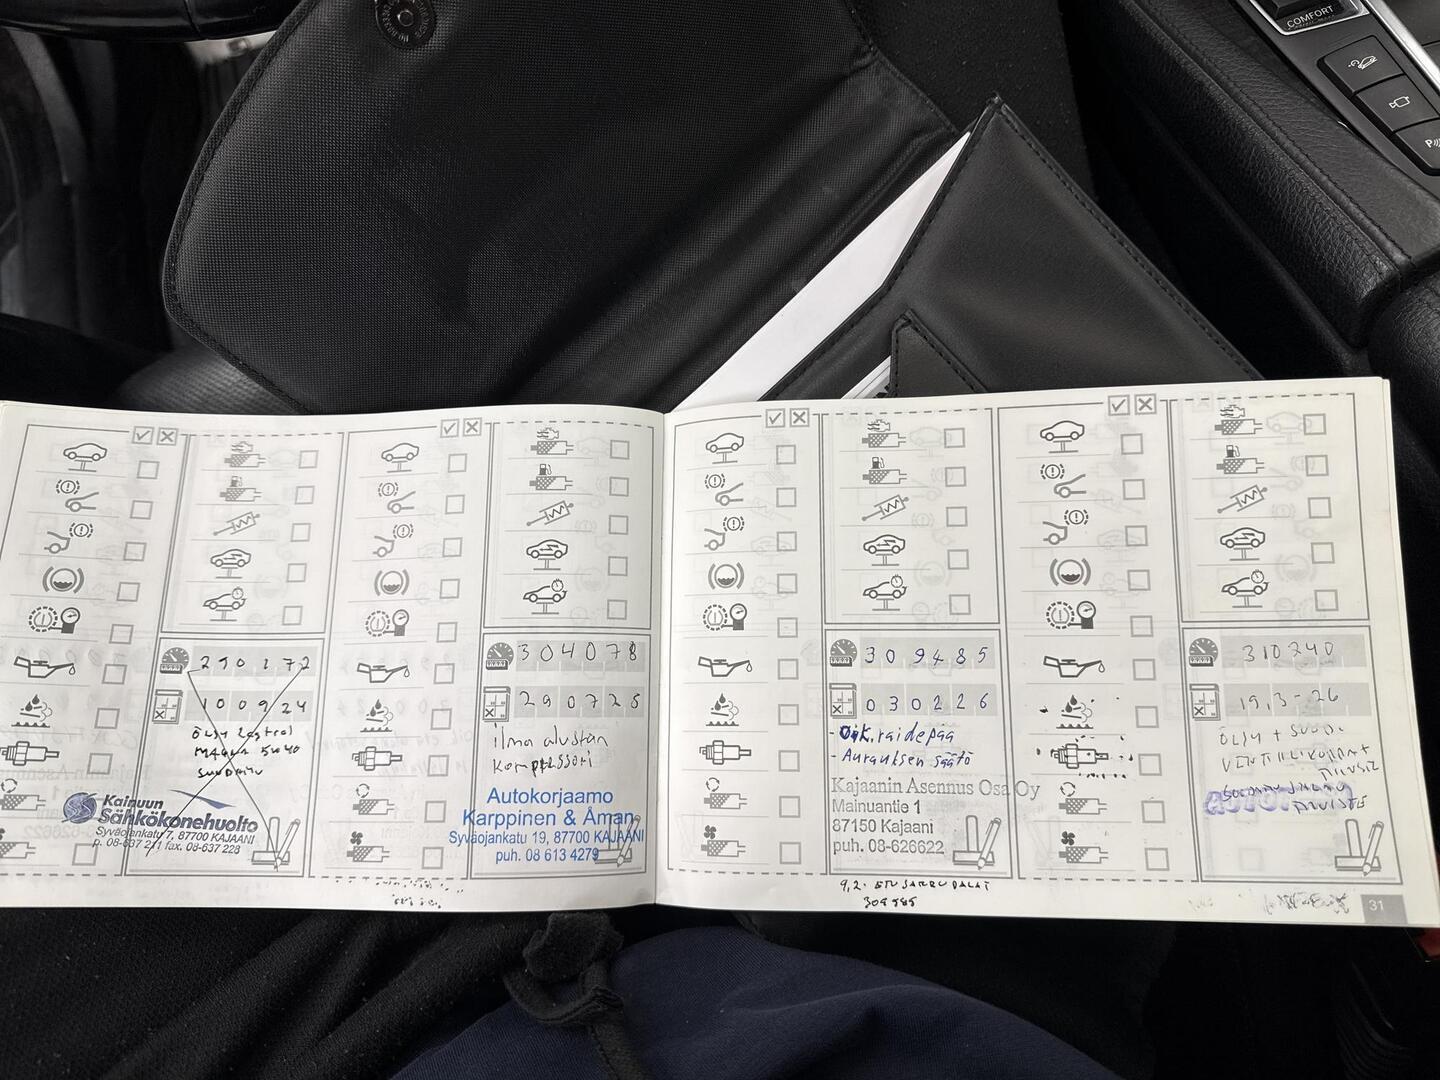 COMFORT
290172
100924
öljy Castrol
MAGNA 5W40
SUODATIN
Kainuun
Sähkökonehuolto
Syväojankatu 7, 87700 KAJAANI
p. 08-637 211 fax. 08-637 228
304078
290725
ilma alustan
kompressori
Autokorjaamo
Karppinen & Åman
Syväojankatu 19, 87700 KAJAANI
puh. 08 613 4279
309485
030226
- Oik. raidepää
- Aurauksen säätö
Kajaanin Asennus Osa Oy
Mainuantie 1
87150 Kajaani
puh. 08-626622
9,2. ETUJARRUPALAT
310240
19,3-26
ÖLJY + SUOD.
31